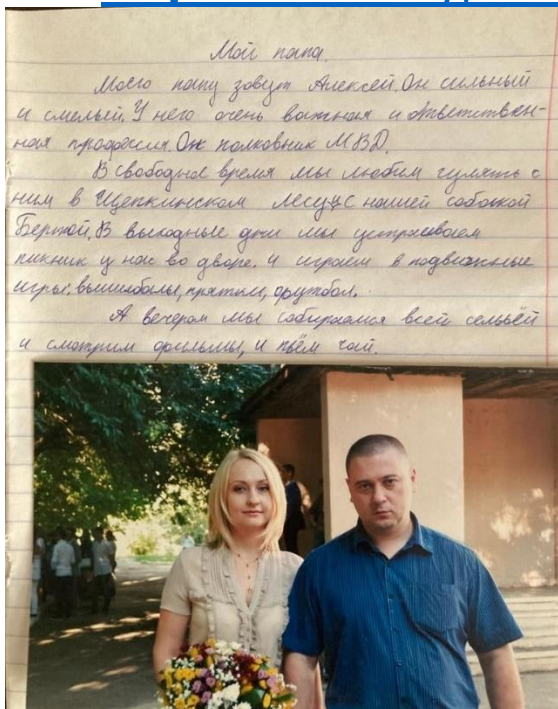 Мой папа.
Моего папу зовут Алексей. Он сильный
и смелый. У него очень важная и ответствен-
ная профессия. Он полковник МВД.
В свободное время мы любим гулять с
ним в Щепкинском лесу, с нашей собакой
Бертой. В выходные дни мы устраиваем
пикник у нас во дворе. и играем в подвижные
игры: вышибалы, прятки, футбол.
А вечером мы собираемся всей семьёй
и смотрим фильмы, и пьём чай.